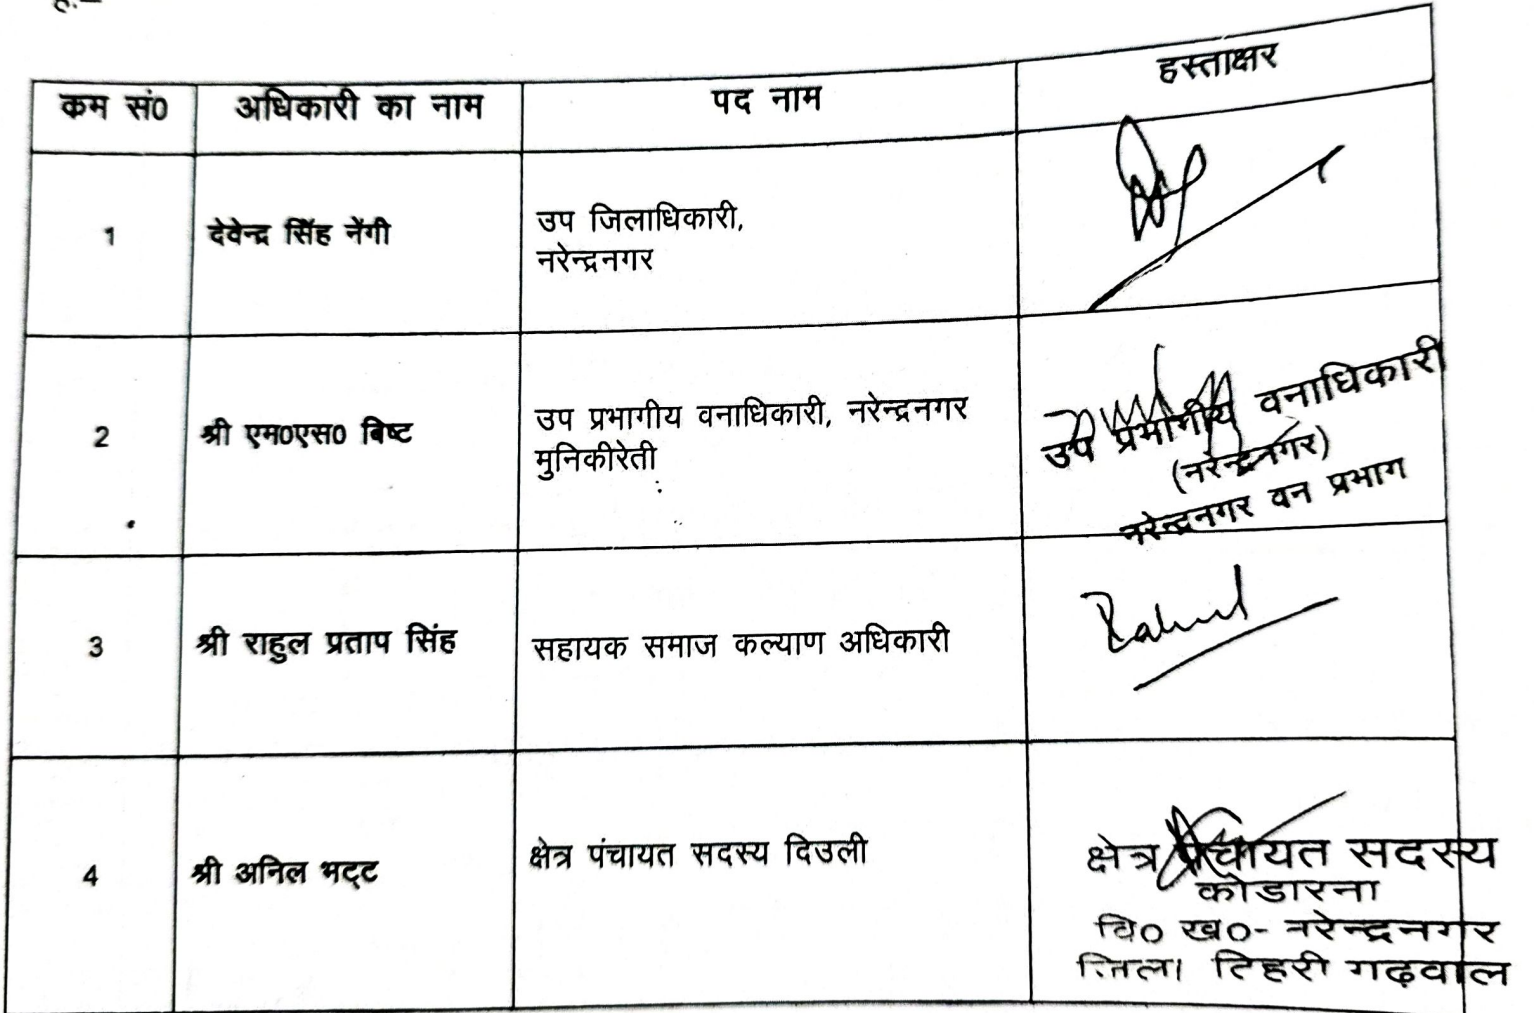 कम सं0 अधिकारी का नाम पद नाम हस्ताक्षर
1 देवेन्द्र सिंह नेंगी उप जिलाधिकारी,
नरेन्द्रनगर
2 श्री एम0एस0 बिष्ट उप प्रभागीय वनाधिकारी, नरेन्द्रनगर
मुनिकीरेती
उप प्रभागीय वनाधिकारी
(नरेन्द्रनगर)
नरेन्द्रनगर वन प्रभाग
3 श्री राहुल प्रताप सिंह सहायक समाज कल्याण अधिकारी
Rahul
4 श्री अनिल भट्ट क्षेत्र पंचायत सदस्य दिउली
क्षेत्र पंचायत सदस्य
कोडारना
वि० ख०- नरेन्द्रनगर
जिला टिहरी गढ़वाल